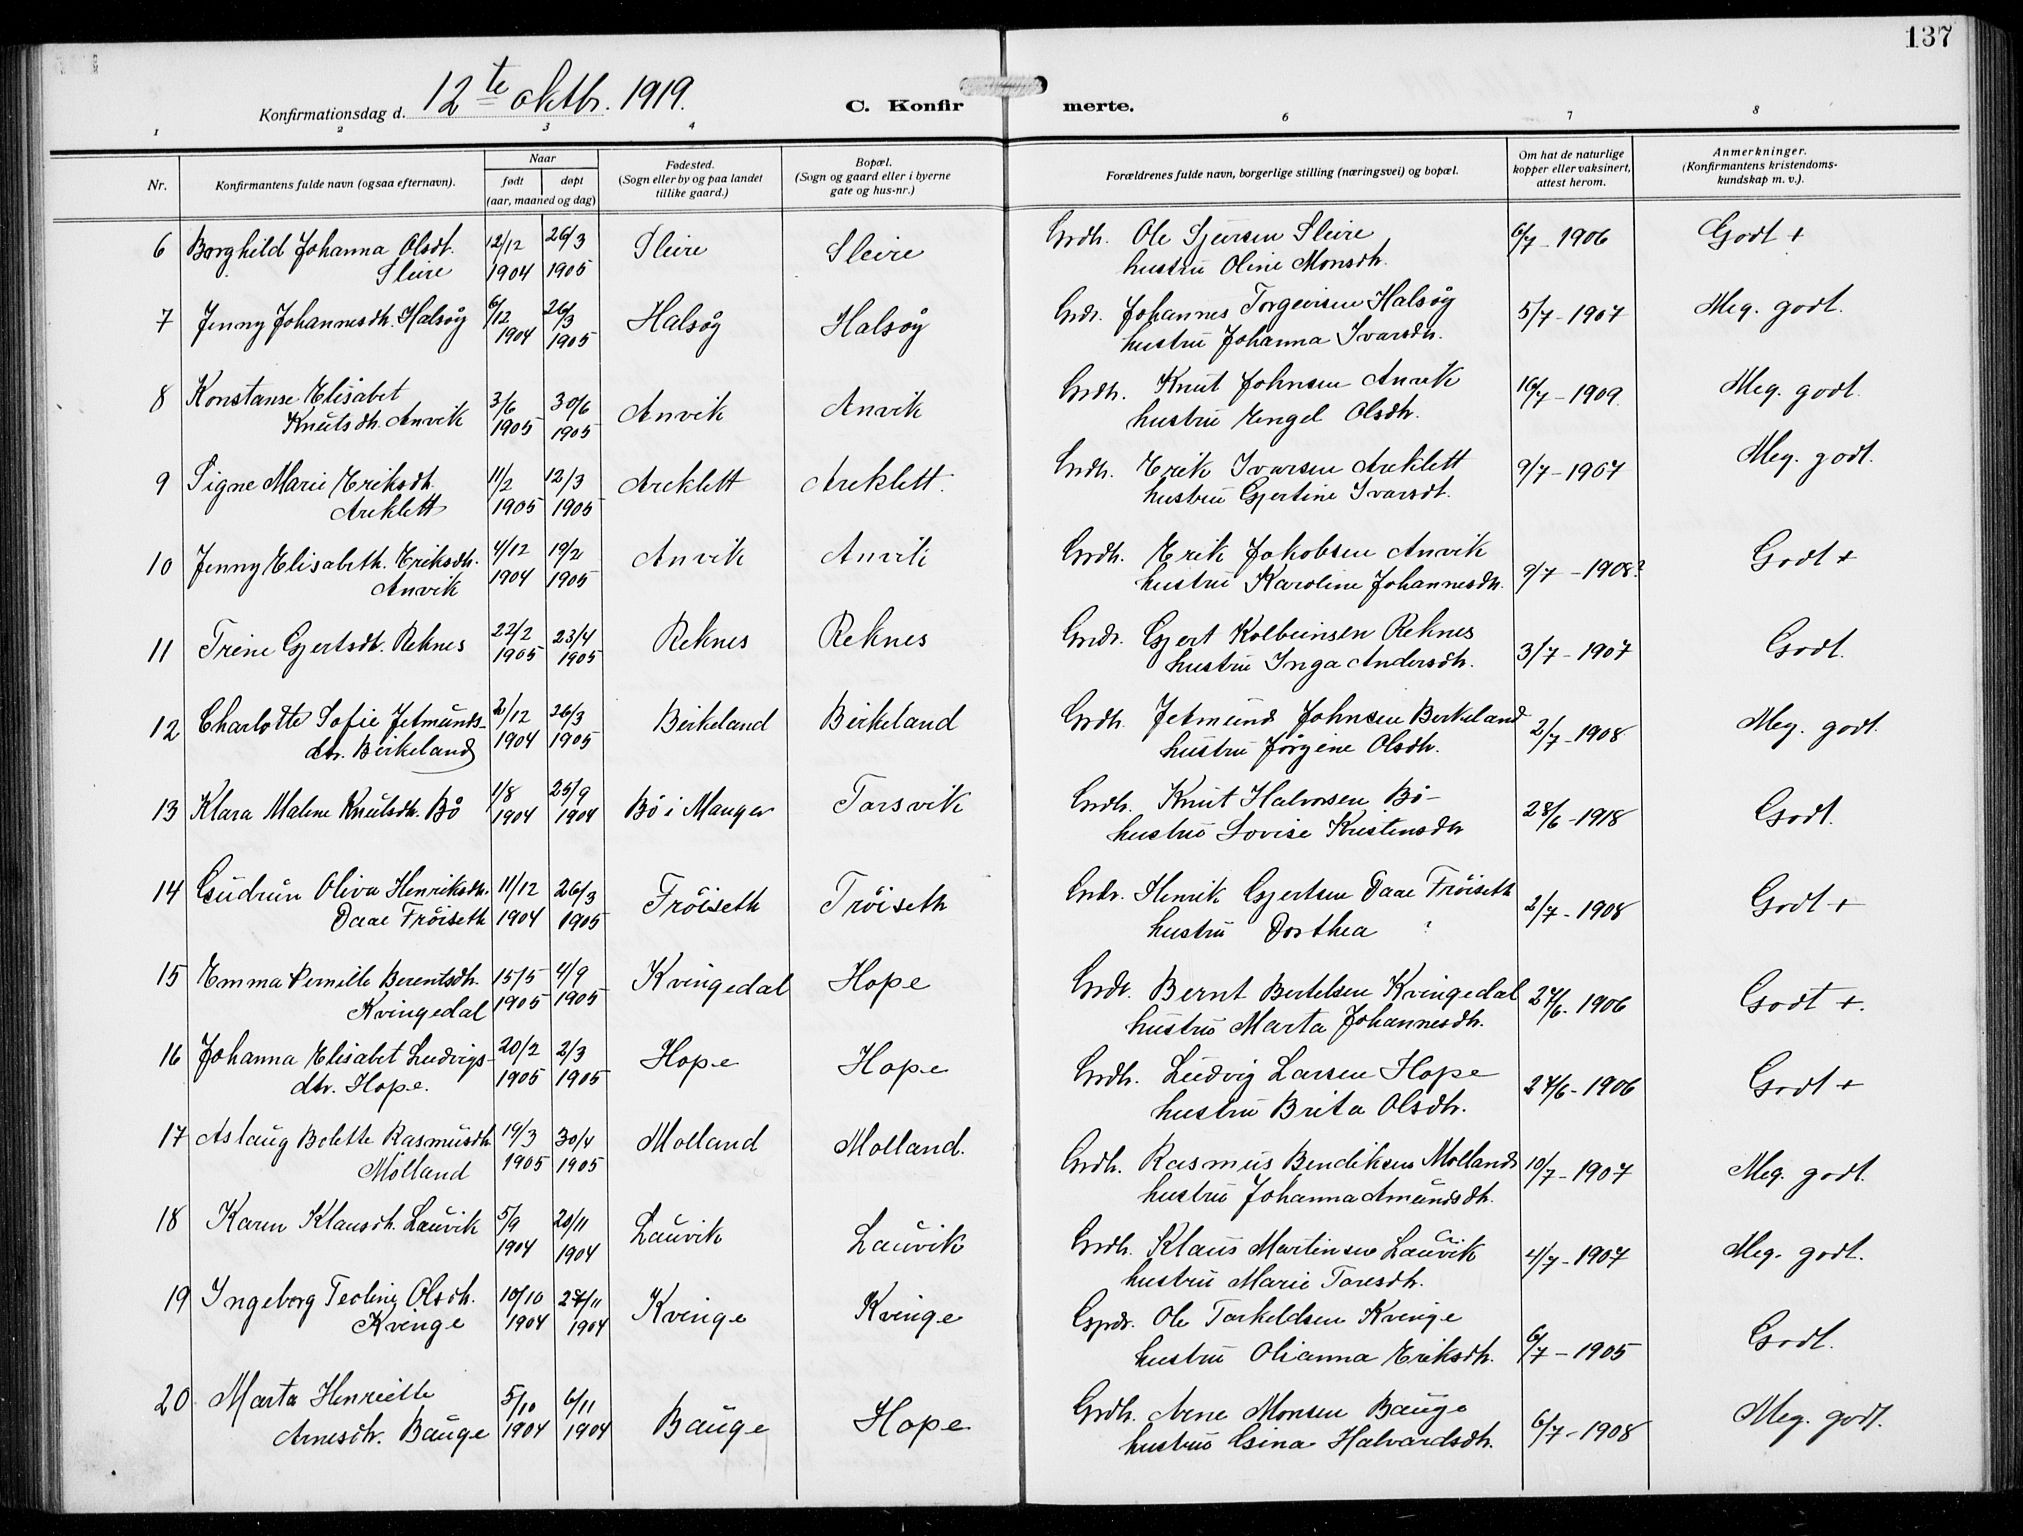 137
Konfirmationsdag d. 12te oktbr. 1919.
C. Konfirmerte.
1 2 3 4 6 7 8
Nr.
Konfirmantens fulde navn (ogsaa efternavn).
Naar
født døpt
(aar, maaned og dag)
Fødested.
(Sogn eller by og paa landet
tillike gaard.)
Bopæl.
(Sogn og gaard eller i byerne
gate og hus-nr.)
Forældrenes fulde navn, borgerlige stilling (næringsvei) og bopæl.
Om hat de naturlige
kopper eller vaksinert,
attest herom.
Anmerkninger.
(Konfirmantens kristendoms-
kundskap m. v.).
6 Borghild Johanna Olsdt. 12/12 26/3 Sleire Sleire Grdbr. Ole Sjursen Sleire 6/7 - 1906 Godt +
Sleire 1904 1905 hustru Oline Monsdtr.
7 Jenny Johannesdtr. Halsøy 6/12 26/3 Halsøy Halsøy Grdr. Johannes Torgeirsen Halsøy 5/7 - 1907 Meg. godt.
1904 1905 hustru Johanna Ivarsdtr.
8 Konstanse Elisabet 3/6 30/6 Anvik Anvik Grdbr. Knut Johnsen Anvik 16/7 - 1909. Meg. godt.
Knutsdtr. Anvik 1905 1905 hustru Engel Olsdtr.
9 Signe Marie Eriksdtr. 11/2 12/3 Areklett Areklett. Grdbr. Erik Ivarsen Areklett 9/7 - 1907 Meg. godt.
Areklett 1905 1905 hustru Gjertine Ivarsdt.
10 Jenny Elisabeth. Eriksdtr. 4/12 19/2 Anvik Anvik Grdbr. Erik Jakobsen Anvik 9/7 - 1908? Godt +
Anvik 1904 1905 hustru Karoline Johannesdtr.
11 Trine Gjertsdtr. Reknes 22/2 23/4 Reknes Reknes Grdr. Gjert Kolbeinsen Reknes 3/7 - 1907 Godt.
1905 1905 hustru Inga Andersdtr.
12 Charlotte Sofie Jetmunds- 2/12 26/3 Birkeland Birkeland Grdbr. Jetmund Johnsen Birkeland 2/7 - 1908 Meg. godt.
dtr. Birkeland 1904 1905 hustru Jørgine Olsdtr.
13 Klara Malene Knutsdtr. Bø 1/8 25/9 Bø i Manger Torsvik Grdbr. Knut Halvorsen Bø- 28/6 - 1918 Godt.
1904 1904 hustru Lovise Kristensdtr
14 Gudrun Oliva Henriksdtr. 11/12 26/3 Frøiseth Frøiseth Grdr. Henrik Gjertsen Daae Frøiseth 2/7 - 1908 Godt +
Daae Frøiseth 1904 1905 hustru Dorthea ?
15 Emma Pernille Berentsdtr. 15/5 4/9 Kvingedal Hope Grdr. Bernt Bertelsen Kvingedal 27/6 - 1906 Godt +.
Kvingedal 1905 1905 hustru Marta Johannesdtr.
16 Johanna Elisabet Ludvigs- 20/2 2/3 Hope Hope Grdbr. Ludvig Larsen Hope 27/6 - 1906 Godt +
dtr. Hope. 1905 1905 hustru Brita Olsdtr.
17 Aslaug Bolette Rasmusdtr 19/3 30/4 Molland Molland. Grdbr. Rasmus Bendiksen Molland 10/7 - 1907 Meg. godt.
Molland 1905 1905 hustru Johanna Amundsdtr.
18 Karen Klausdtr. Lauvik 5/9 20/11 Lauvik Lauvik Grdbr. Klaus Martinsen Lauvik 4/7 - 1907 Meg. godt.
1904 1904 hustru Marie Toresdtr.
19 Ingeborg Teoline Olsdtr. 10/10 27/11 Kvinge Kvinge Gprdr. Ole Torkeldsen Kvinge 6/7 - 1905 Godt.
Kvinge 1904 1904 hustru Olianna Eriksdtr.
20 Marta Henriette 5/10 6/11 Bauge Hope Grdbr. Arne Monsen Bauge 6/7 - 1908 Meg. godt.
Arnesdtr. Bauge 1904 1904 hustru Gsina Halvardsdtr.